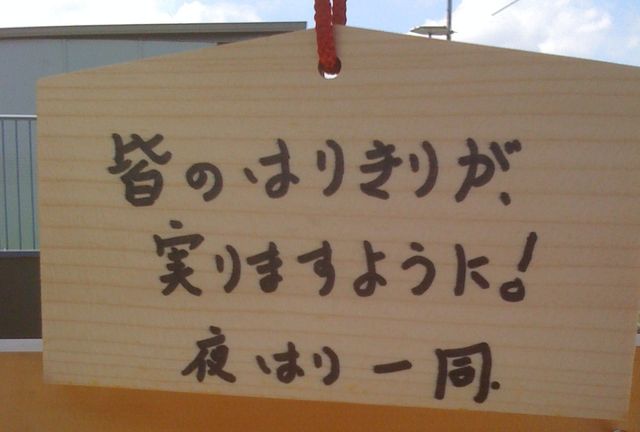 皆のはりきりが、
実りますように!
夜はり一同.